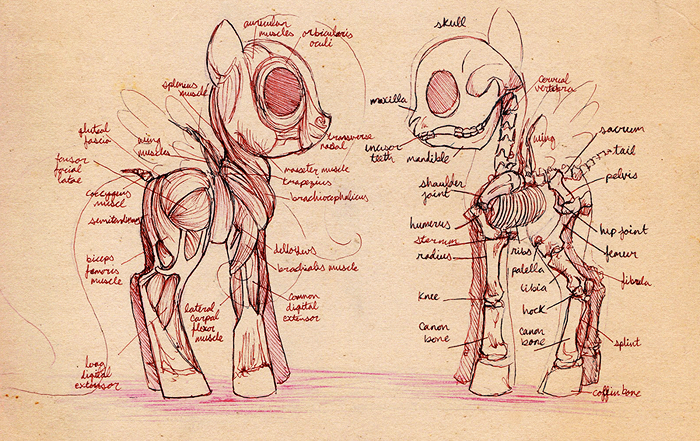 auricular
muscles
orbicularis
oculi
splenius
muscle
gluteal
fascia
wing
muscles
transverse
nasal
masseter muscle
trapezius
brachiocephalicus
coccygeus
muscl
biceps
femoris
muscle
brachialis muscle
lateral
carpal
flexor
muscle
common
digital
extensor
long
digital
extensor
skull
maxilla
cervical
vertebra
incisor
teeth
mandible
wing
sacrum
tail
pelvis
shoulder
joint
humerus
sternum
radius
ribs
patella
tibia
hip joint
femer
fibula
knee
hock
canon
bone
canon
bone
splint
coffin bone